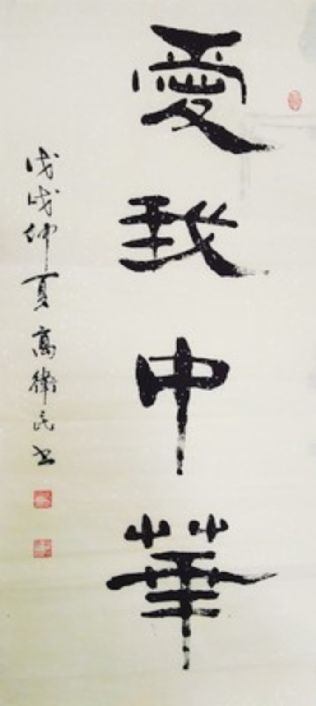 愛我中華
戊戌仲夏高衛民书